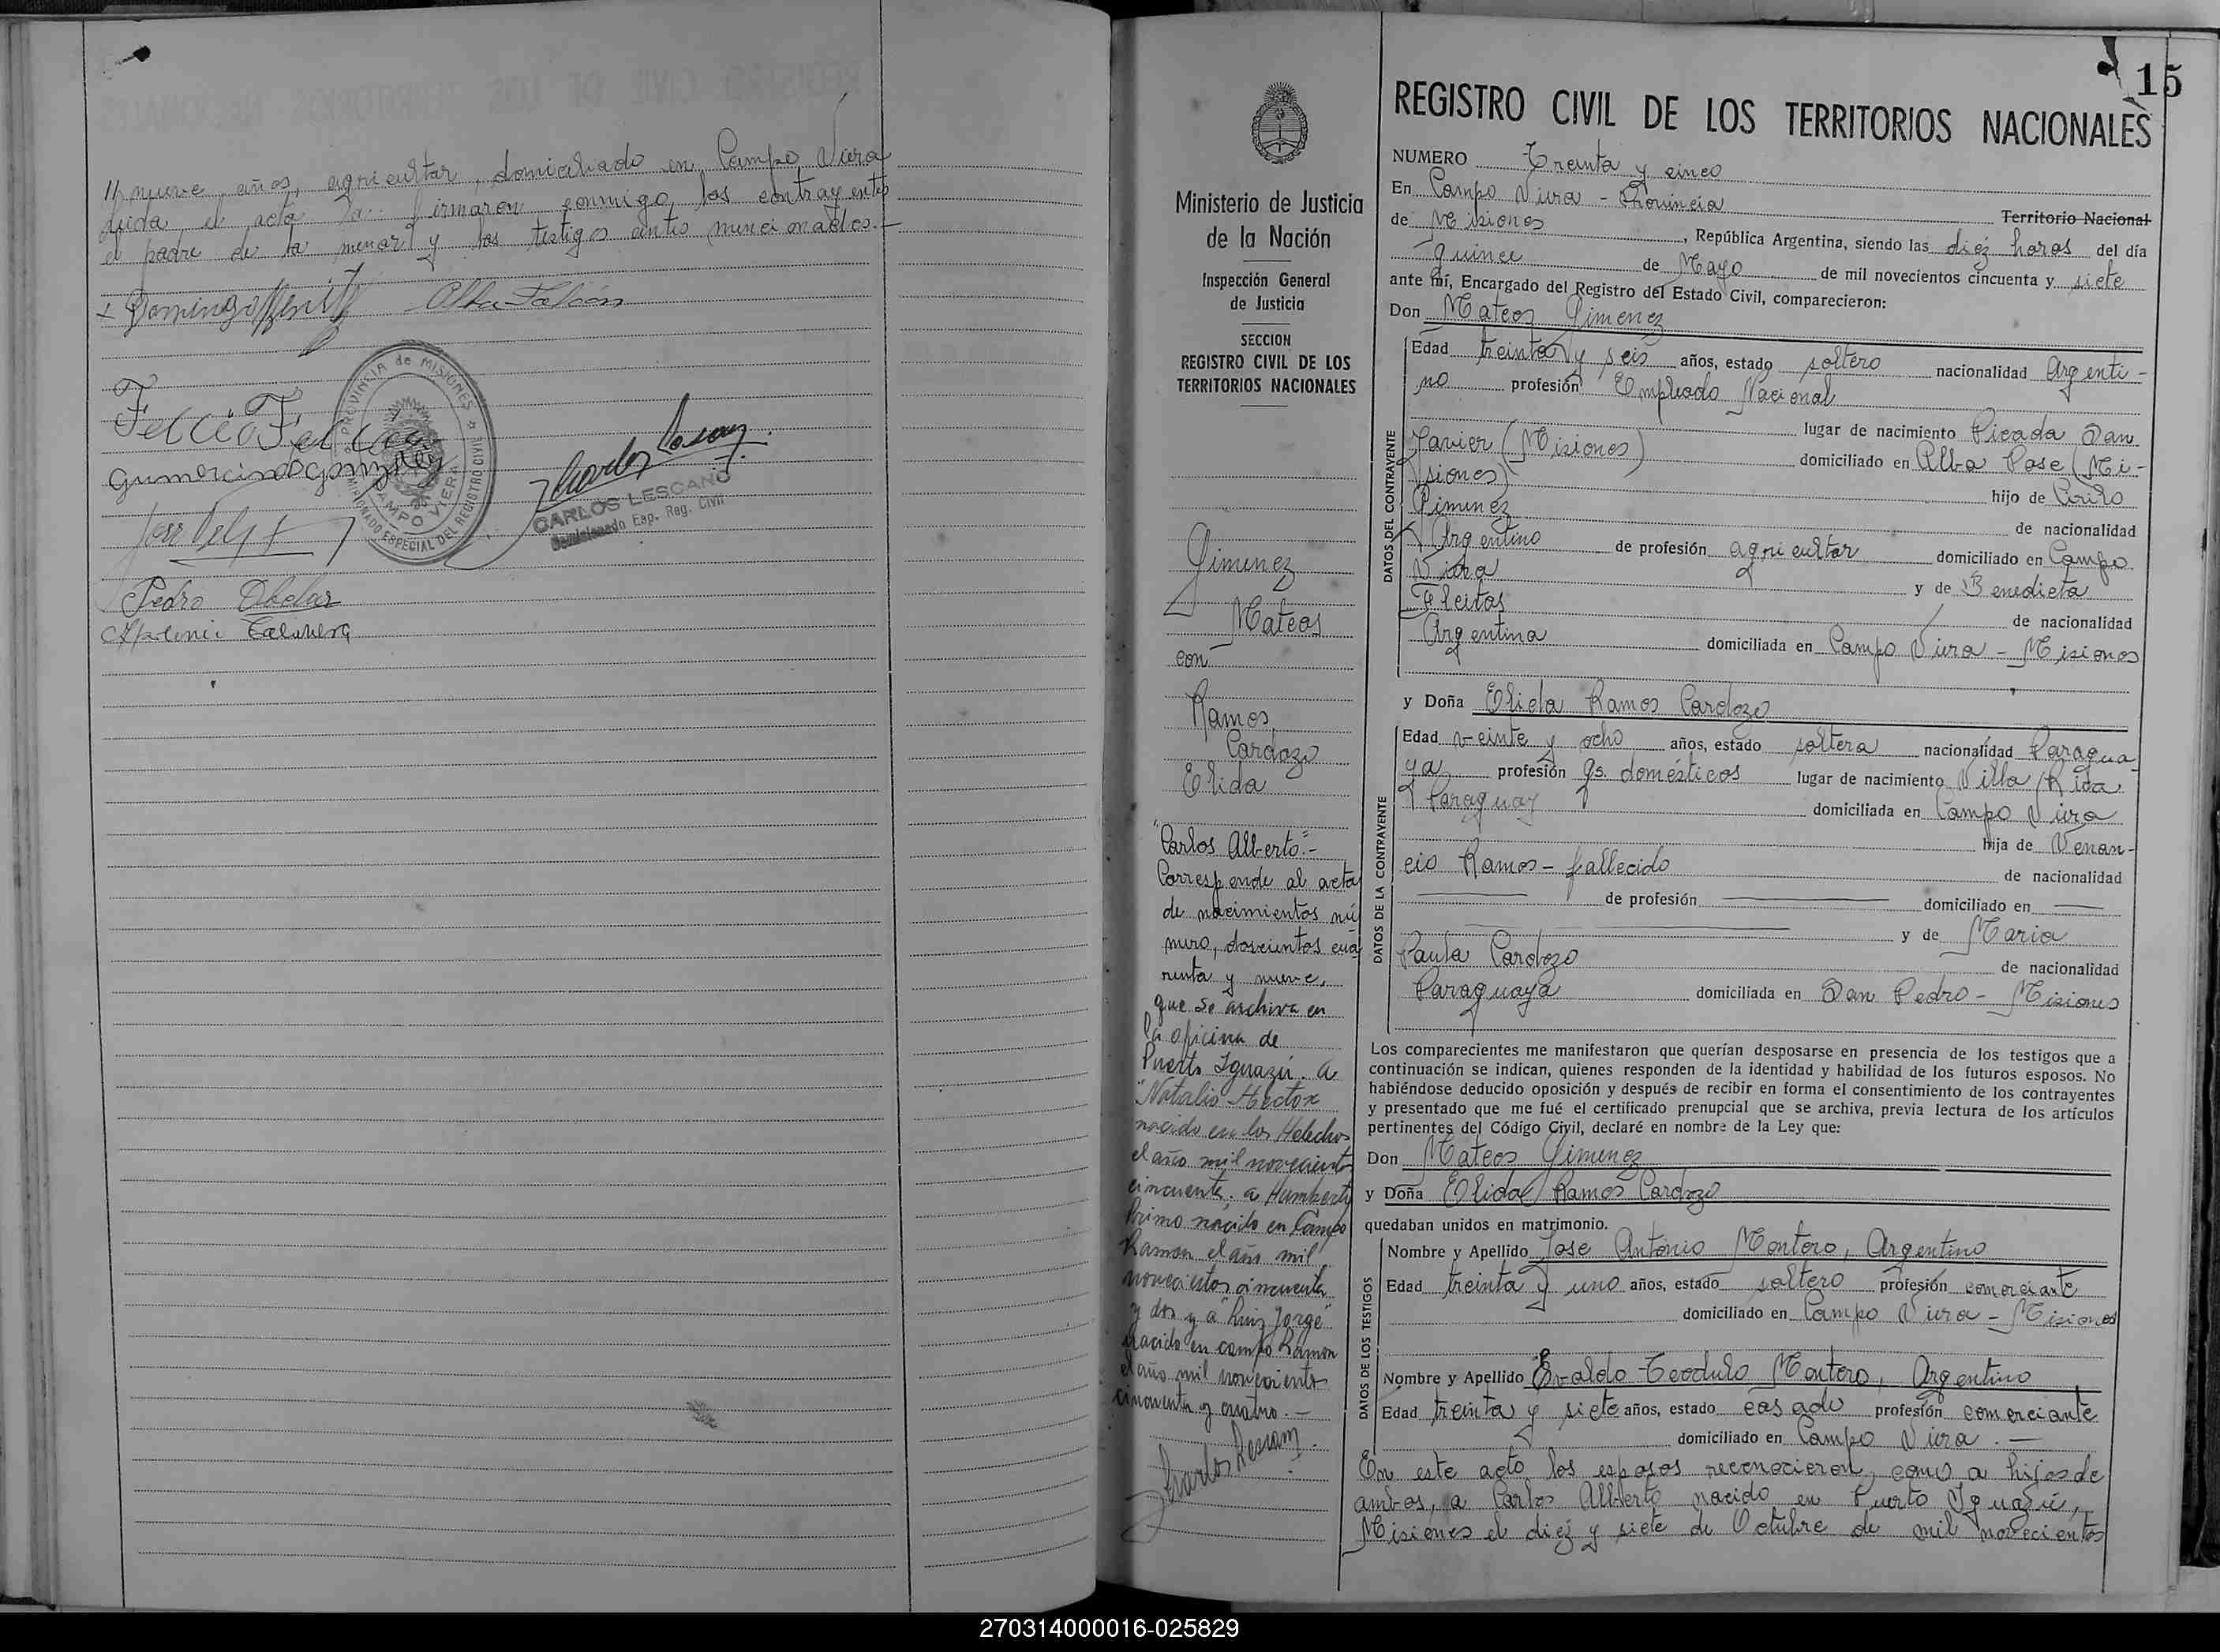 // nueve años, agricultor, domiciliado en Campo Viera
leida el acta la firmaron conmigo, los contrayentes
el padre de la menor y los testigos antes mencionados.—
Domingo
PROVINCIA de MISIONES
CAMPO VIERA
COMISIONADO ESPECIAL DEL REGISTRO CIVIL
Gumercindo Gonzalez
CARLOS LESCANO
Comisionado Esp. Reg. Civil
Pedro
15
Ministerio de Justicia
de la Nación
Inspección General
de Justicia
SECCION
REGISTRO CIVIL DE LOS
TERRITORIOS NACIONALES
Gimenez
Mateos
con
Ramos
Cardozo
Elida
"Carlos Alberto".-
Corresponde al acta
de nacimientos nú
mero, doscientos cua
renta y nueve,
que se archiva en
la oficina de
Puerto Iguazú. a
"Natalio Hector
nacido en los Helechos
el año mil novecientos
cincuenta. a Humberto
Primo nacido en Campo
Ramon el año mil
novecientos cincuenta
y dos y a "Luis Jorge"
nacido en campo Ramon
el año mil novecientos
cincuenta y cuatro. —
REGISTRO CIVIL DE LOS TERRITORIOS NACIONALES
NUMERO Treinta y cinco
En Campo Viera - Provincia Territorio Nacional
de Misiones, República Argentina, siendo las diez horas del día
quince de Mayo de mil novecientos cincuenta y siete
ante mí, Encargado del Registro del Estado Civil, comparecieron:
Don Mateos Gimenez
DATOS DEL CONTRAYENTE
Edad treinta y seis años, estado soltero nacionalidad Argenti-
no profesión Empleado Nacional
lugar de nacimiento Picada San
Javier (Misiones) domiciliado en Alba Pose (Mi-
siones) hijo de Cirilo
Gimenez de nacionalidad
Argentino de profesión agricultor domiciliado en Campo
Viera y de Benedicta
Fleitas de nacionalidad
Argentina domiciliada en Campo Viera - Misiones
y Doña Elida Ramos Cardozo
DATOS DE LA CONTRAYENTE
Edad veinte y ocho años, estado soltera nacionalidad Paragua-
ya profesión Qs. domésticos lugar de nacimiento Villa Rica
Paraguay domiciliada en Campo Viera
hija de Venan-
cio Ramos - fallecido de nacionalidad
de profesión domiciliado en
y de Maria
Paula Cardozo de nacionalidad
Paraguaya domiciliada en San Pedro - Misiones
Los comparecientes me manifestaron que querían desposarse en presencia de los testigos que a
continuación se indican, quienes responden de la identidad y habilidad de los futuros esposos. No
habiéndose deducido oposición y después de recibir en forma el consentimiento de los contrayentes
y presentado que me fué el certificado prenupcial que se archiva, previa lectura de los artículos
pertinentes del Código Civil, declaré en nombre de la Ley que:
Don Mateos Gimenez
y Doña Elida Ramos Cardozo
quedaban unidos en matrimonio.
DATOS DE LOS TESTIGOS
Nombre y Apellido Jose Antonio Montero, Argentino
Edad treinta y uno años, estado soltero profesión comerciante
domiciliado en Campo Viera - Misiones
Nombre y Apellido Evaldo Teodulo Montero, Argentino
Edad treinta y siete años, estado casado profesión comerciante
domiciliado en Campo Viera. —
En este acto los esposos reconocieron, como a hijos de
ambos, a Carlos Alberto nacido en Puerto Iguazú,
Misiones el diez y siete de Octubre de mil novecientos
270314000016-025829